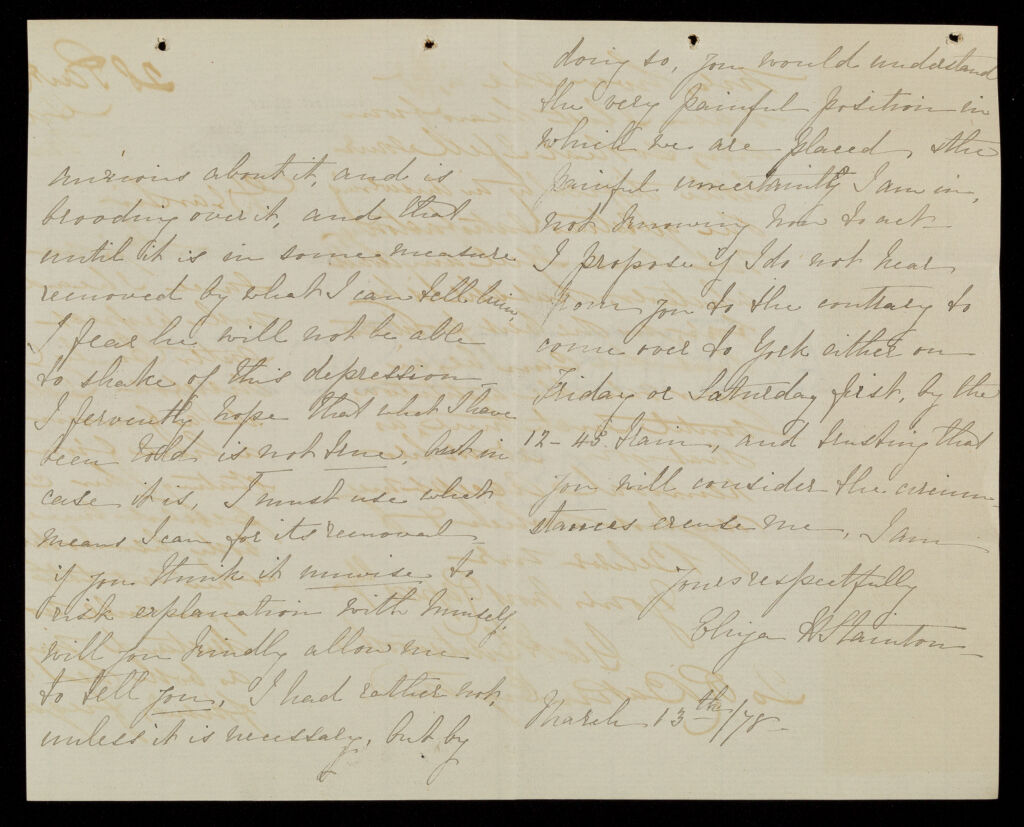 anxious about it, and is
brooding over it, and that
until it is in some measure
removed by what I can tell him,
I fear he will not be able
to shake of this depression
I fervently hope that what I have
been told is not true, but in
case it is, I must use what
means I can for its removal
if you think it unwise to
risk explanation with himself,
will you kindly allow me
to tell you, I had rather not,
unless it is necessary, but by
doing so, you would understand
the very painful position in
which we are placed, the
painful uncertainty I am in,
not knowing how to act
I propose if I do not hear
from you to the contrary to
come over to York either on
Friday or Saturday first, by the
12-45 train, and trusting that
you will consider the circum-
stances excuse me, I am
Yours respectfully
Eliza Stainton
March 13th/78